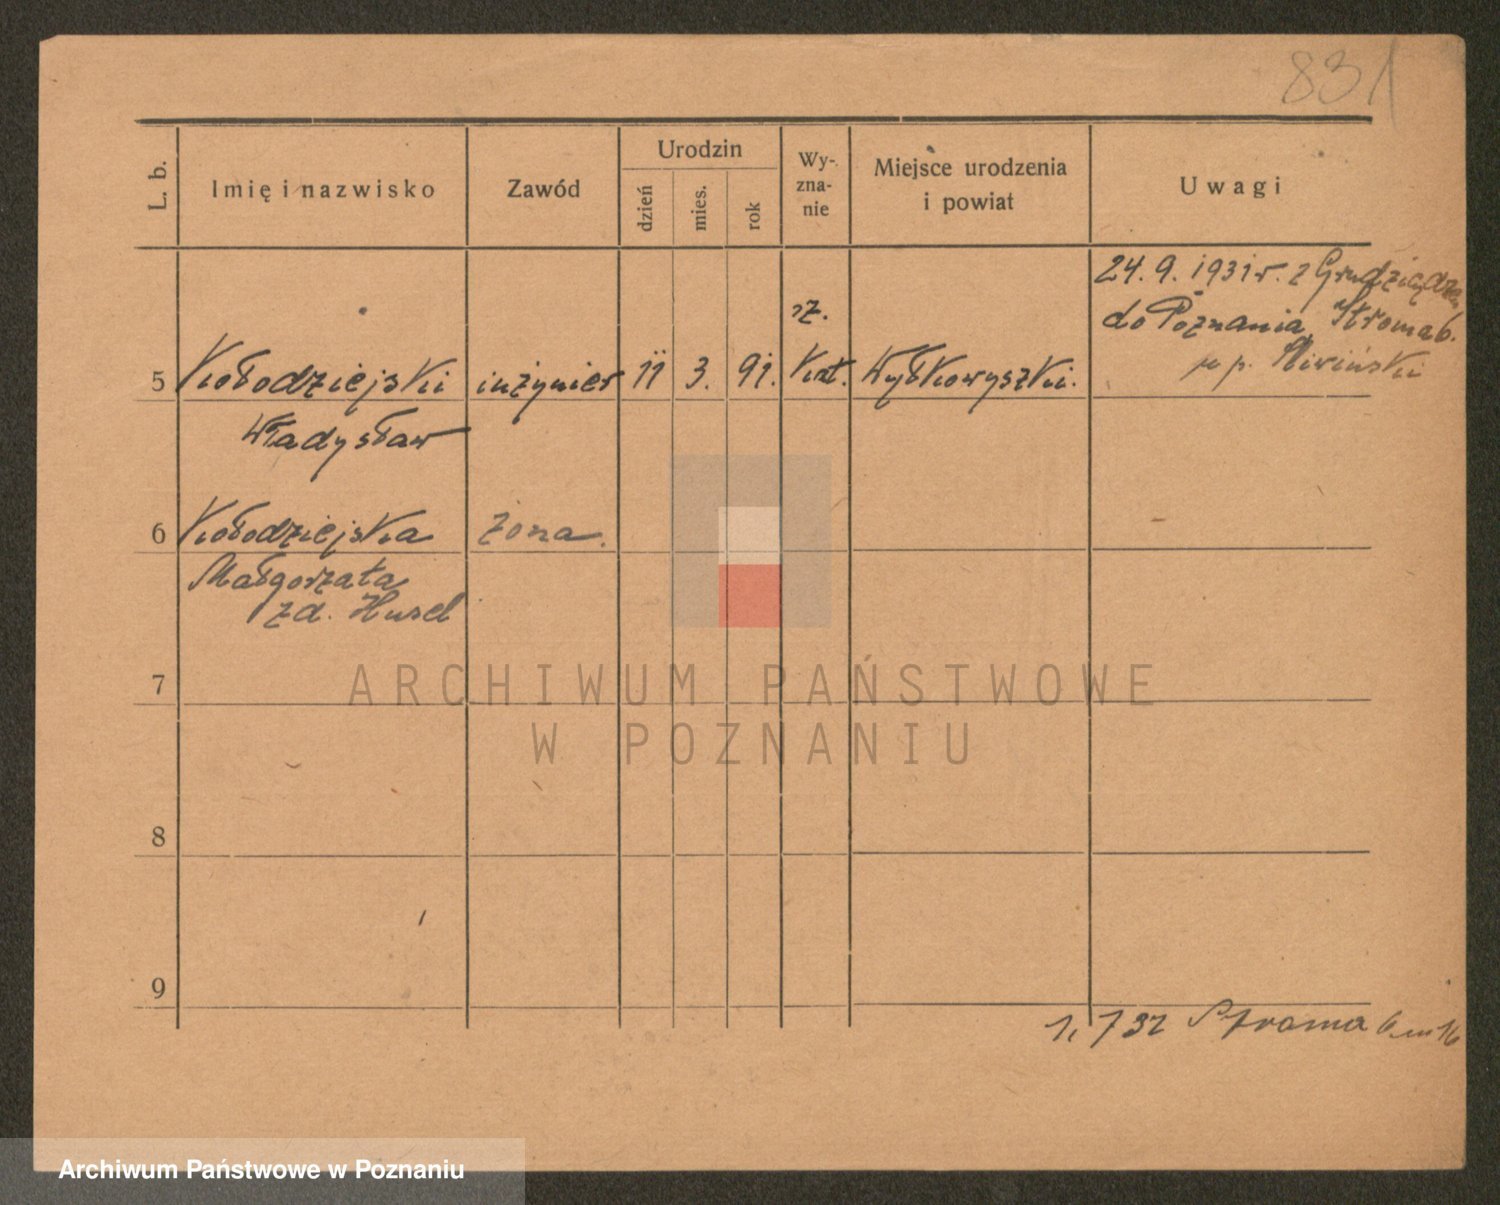 831
L. b.
Imię i nazwisko
Zawód
Urodzin
dzień
mies.
rok
Wy-
zna-
nie
Miejsce urodzenia
i powiat
Uwagi
24. 9. 1931 r. z Grudziądza
do Poznania, Stroma 6.
u p. Śliwiński
rz.
5 Kołodziejski inżynier 11 3. 91. Kat. Wyłkowyszki.
Władysław
6 Kołodziejska żona.
Małgorzata
zd. Husel
7
8
9
1, 7 32 Stroma 6 m 16
ARCHIWUM PAŃSTWOWE
W POZNANIU
Archiwum Państwowe w Poznaniu